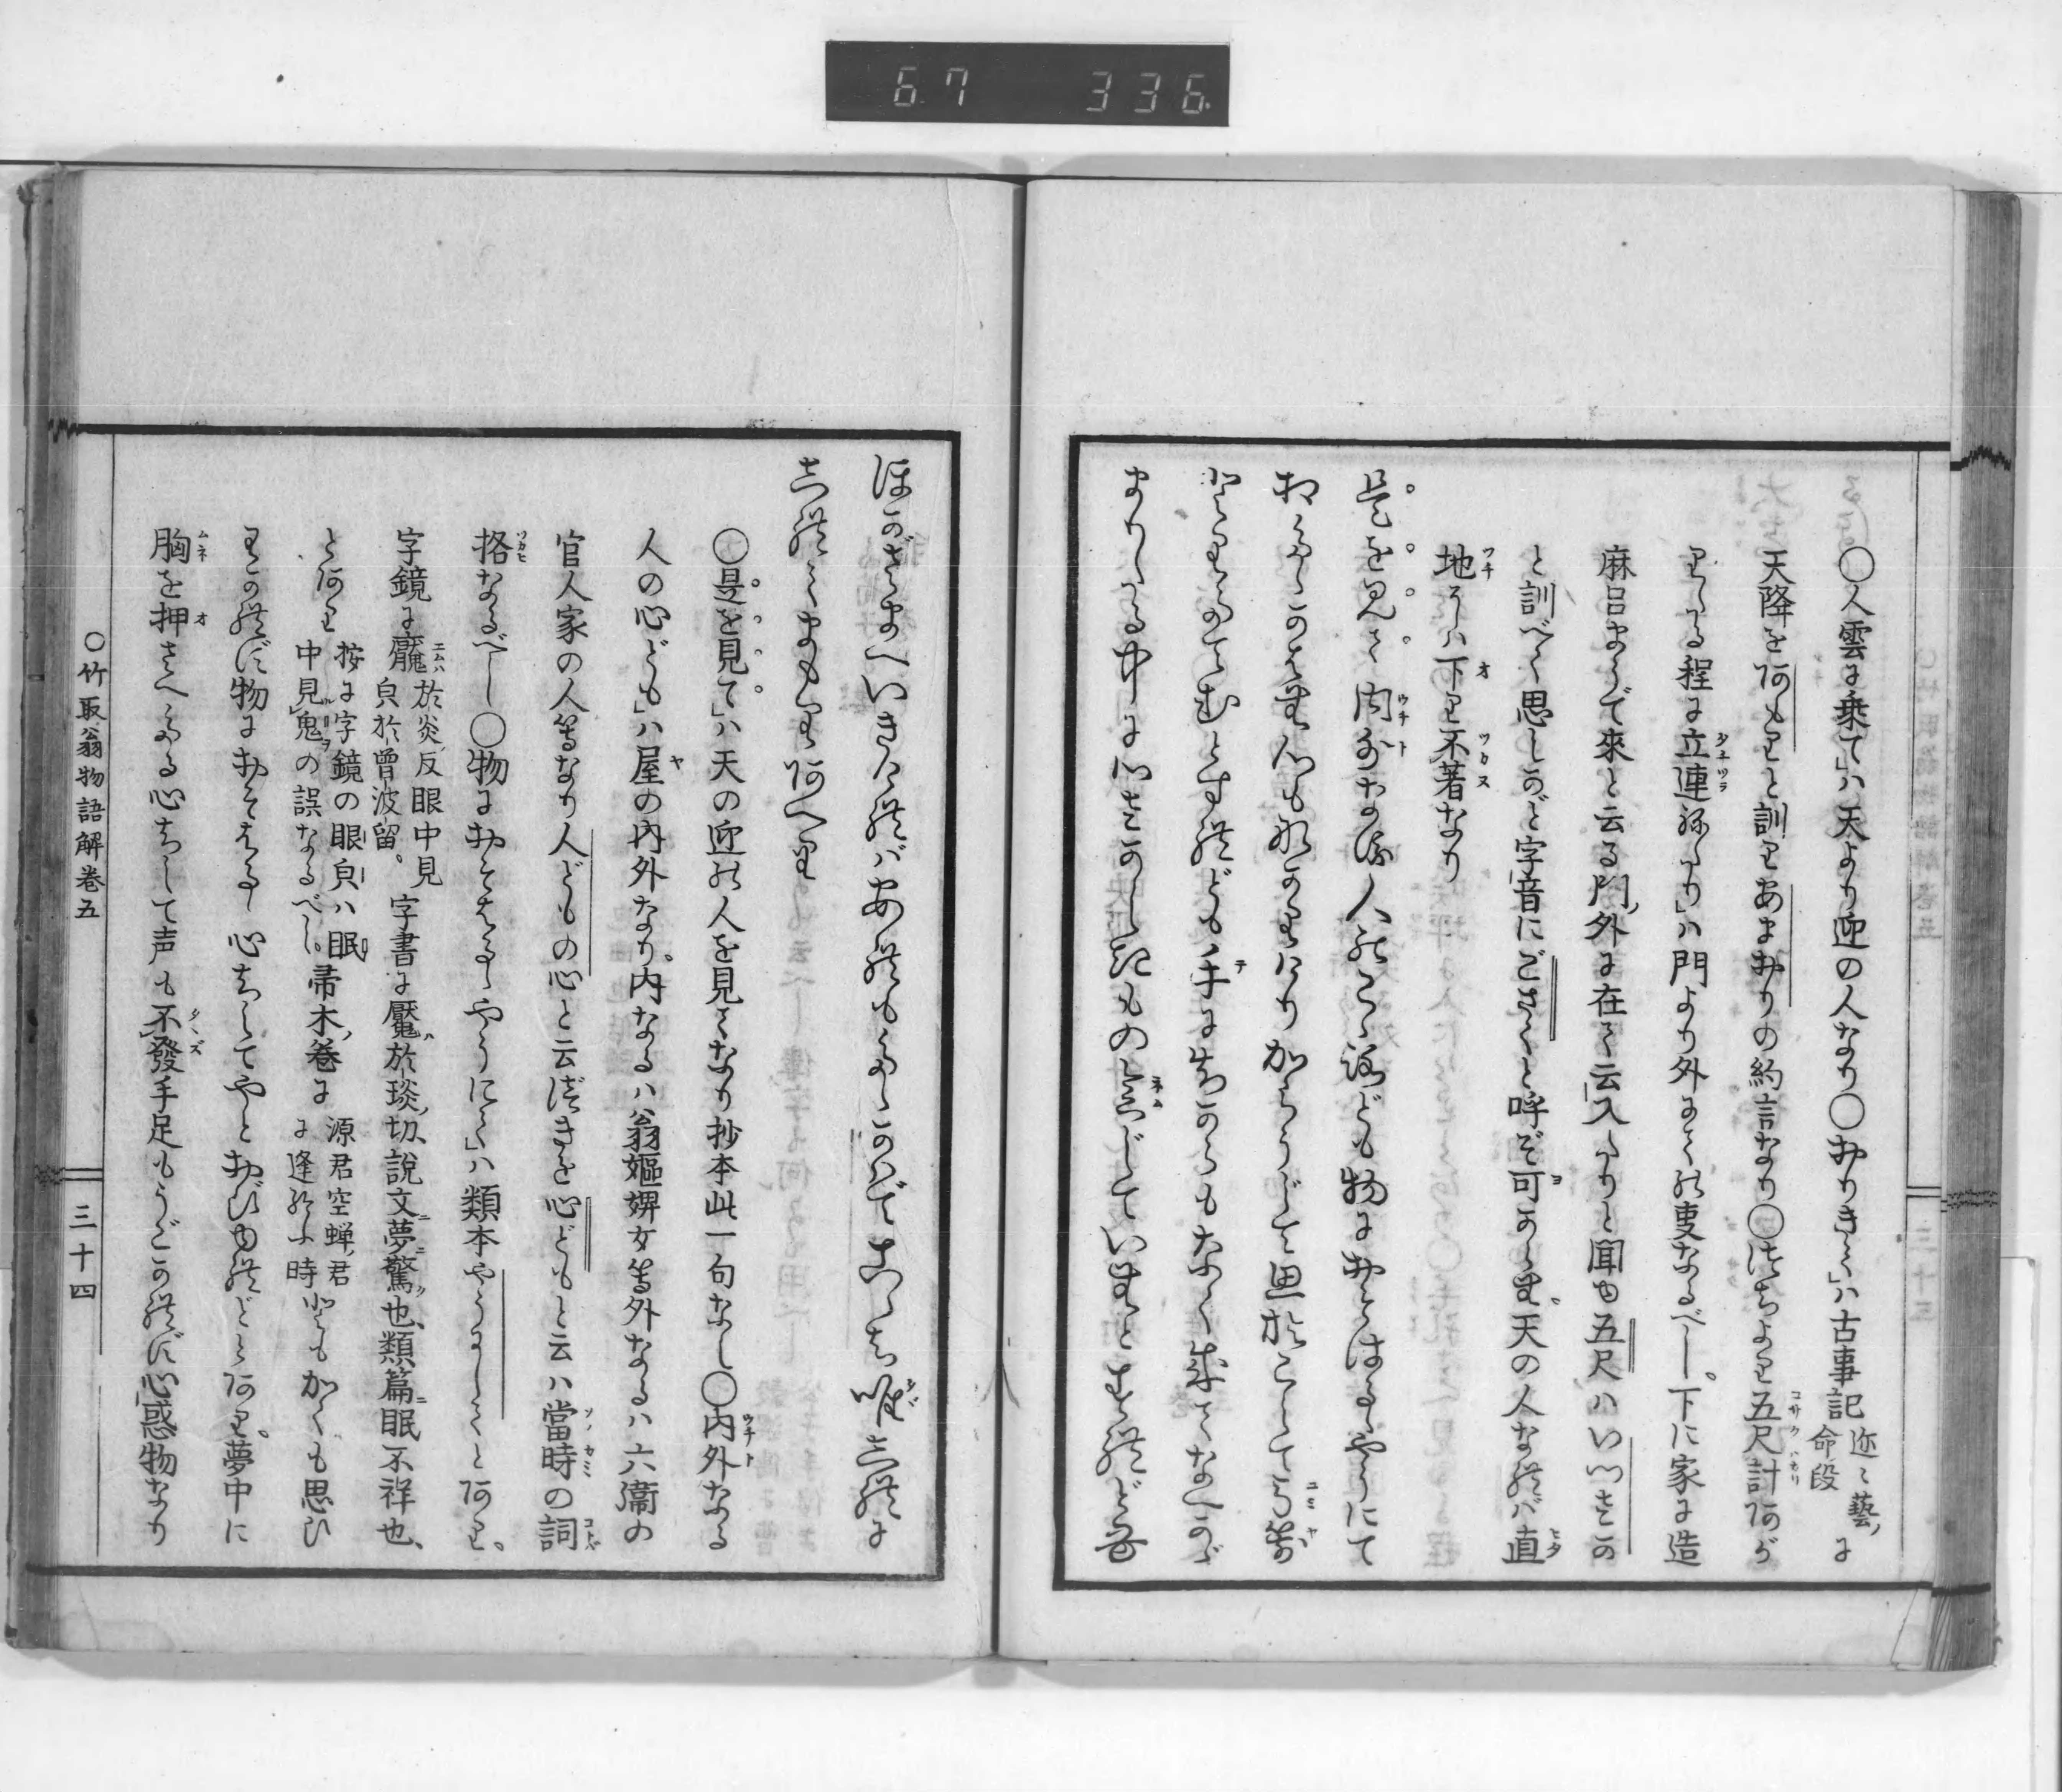 67 336
〇人雲に乗て」ハ天より迎の人なり〇おりきて」ハ古事記迩々藝命段に
天降を阿もりと訓りあまおりの約言なり〇つちより五尺計阿が
りたる程に立連ねたり」ハ門より外にての叓なるべし。下に家に造
麻呂まうで來と云る門外に在て云入たりと聞ゆ五尺ハいつさか
と訓べく思しかど字音にごさくと呼ぞ可かりし天の人なれバ直
地にハ下り不著なり
是を見て内外なる人のこゝろども物におそはるゝやうにて
相たゝかはむ心もなかりけり からうじて思ひおこして弓箭を
とりたてむとすれども手に力もなくなりてなへかゞ
まりたる中に心さかしきもの念じていむとすれども
ほかざまへいきければあれもたゝかはでこゝち唯しれに
しれてまもりあへり
〇是を見て」ハ天の迎の人を見てなり抄本此一句なし〇内外なる
人の心ども」ハ屋の内外なり。内なるハ翁嫗婢女等外なるハ六衞の
官人家の人等なり人どもの心と云べきを心どもと云ハ當時の詞
格なるべし〇物におそはるゝやうにて」ハ類本やうにしてと阿り。
字鏡に魘於炎反眼中見㒵於曽波留。字書に魘於琰切、說文夢驚也、類篇眠不祥也、
と阿り按に字鏡の眼㒵ハ眠中見鬼の誤なるべし。帚木巻に源君空蝉君に逢給ふ時ともかくも思ひ
わかれず物におそはるゝ心ちしてやとおびゆれどと阿り。夢中に
胸を押さへたる心ちして声も不發手足もうごかれず心惑物なり
〇竹取翁物語解巻五
三十四